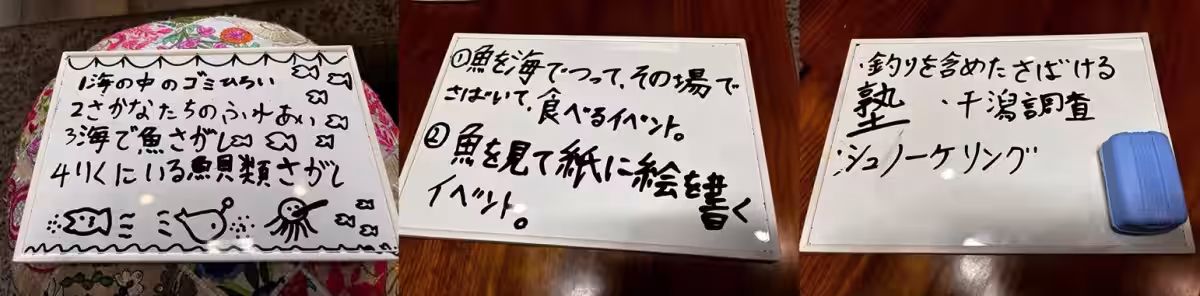 1海の中のゴミひろい
2さかなたちのふれあい
3海で魚さがし
4りくにいる魚貝類さがし
①魚を海でつって、その場で
さばいて、食べるイベント。
②魚を見て紙に絵を書く
イベント。
・釣りを含めたさばける
塾 ・干潟調査
・シュノーケリング